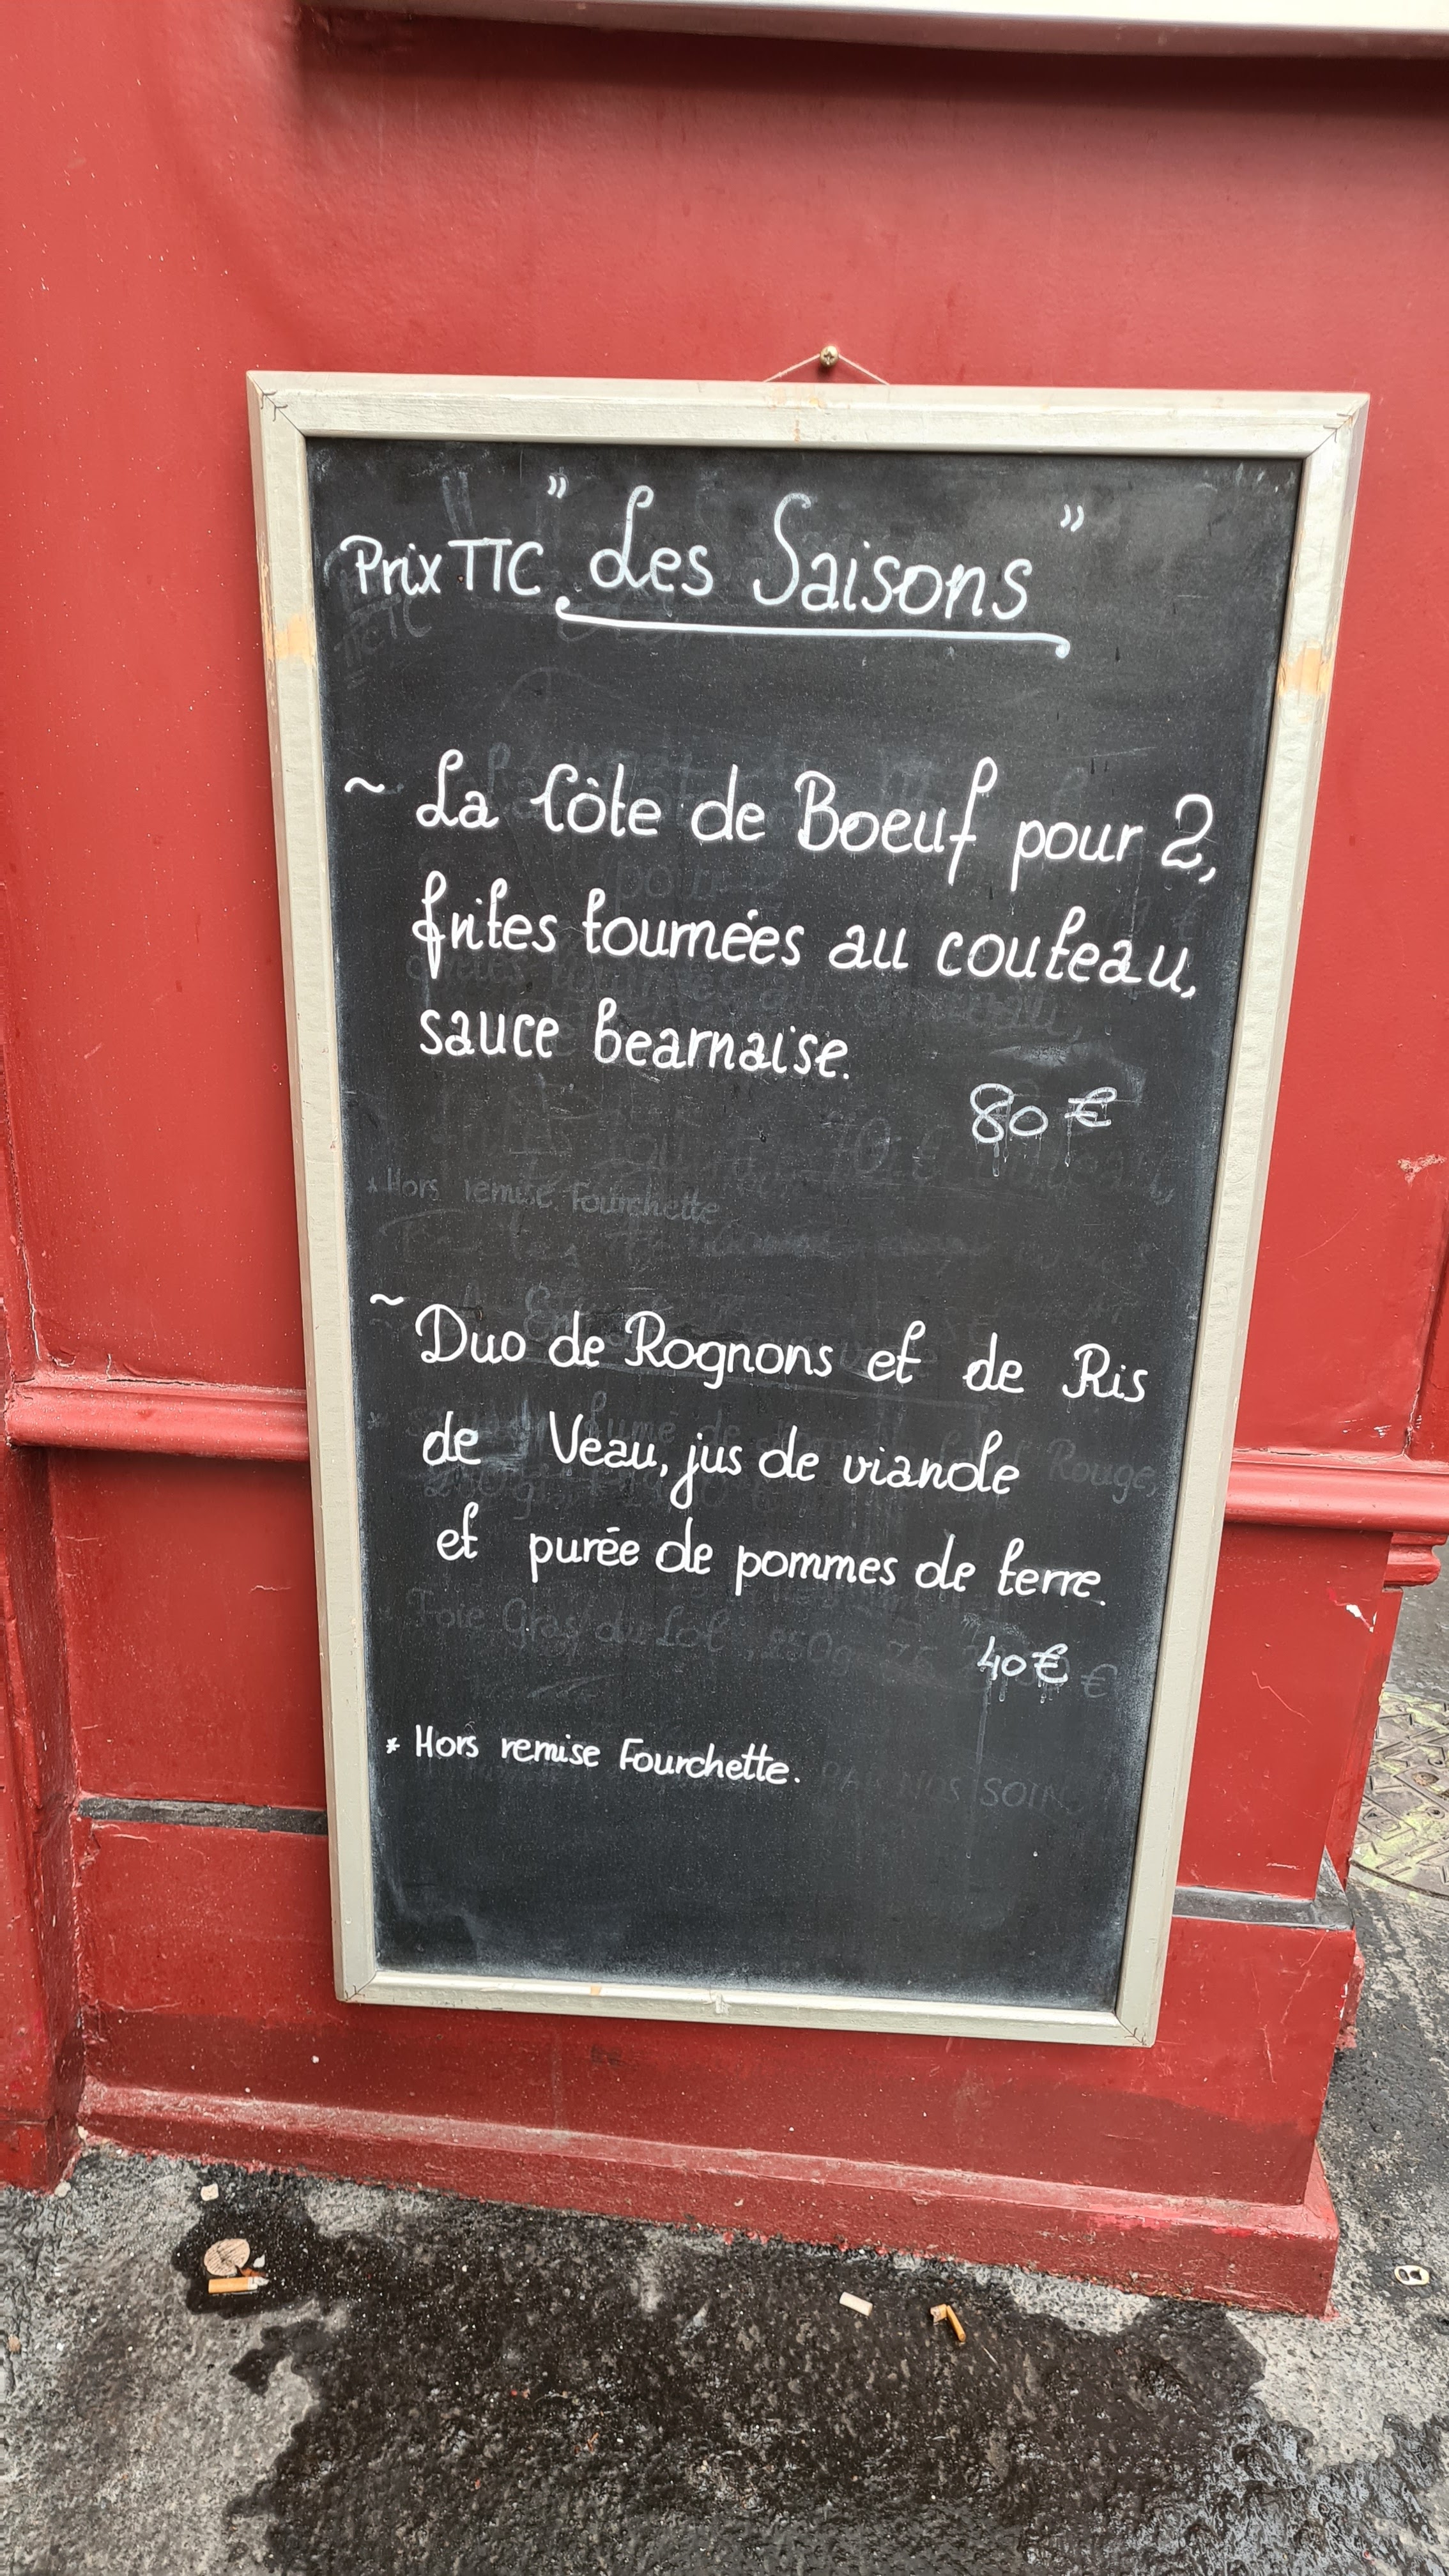 Prix TTC "Les Saisons"
~ La Côte de Boeuf pour 2,
frites tournées au couteau,
sauce bearnaise.
80 €
* Hors remise Fourchette
~ Duo de Rognons et de Ris
de Veau, jus de viande
et purée de pommes de terre.
Foie Gras du Lot, 250g
40 €
* Hors remise Fourchette.